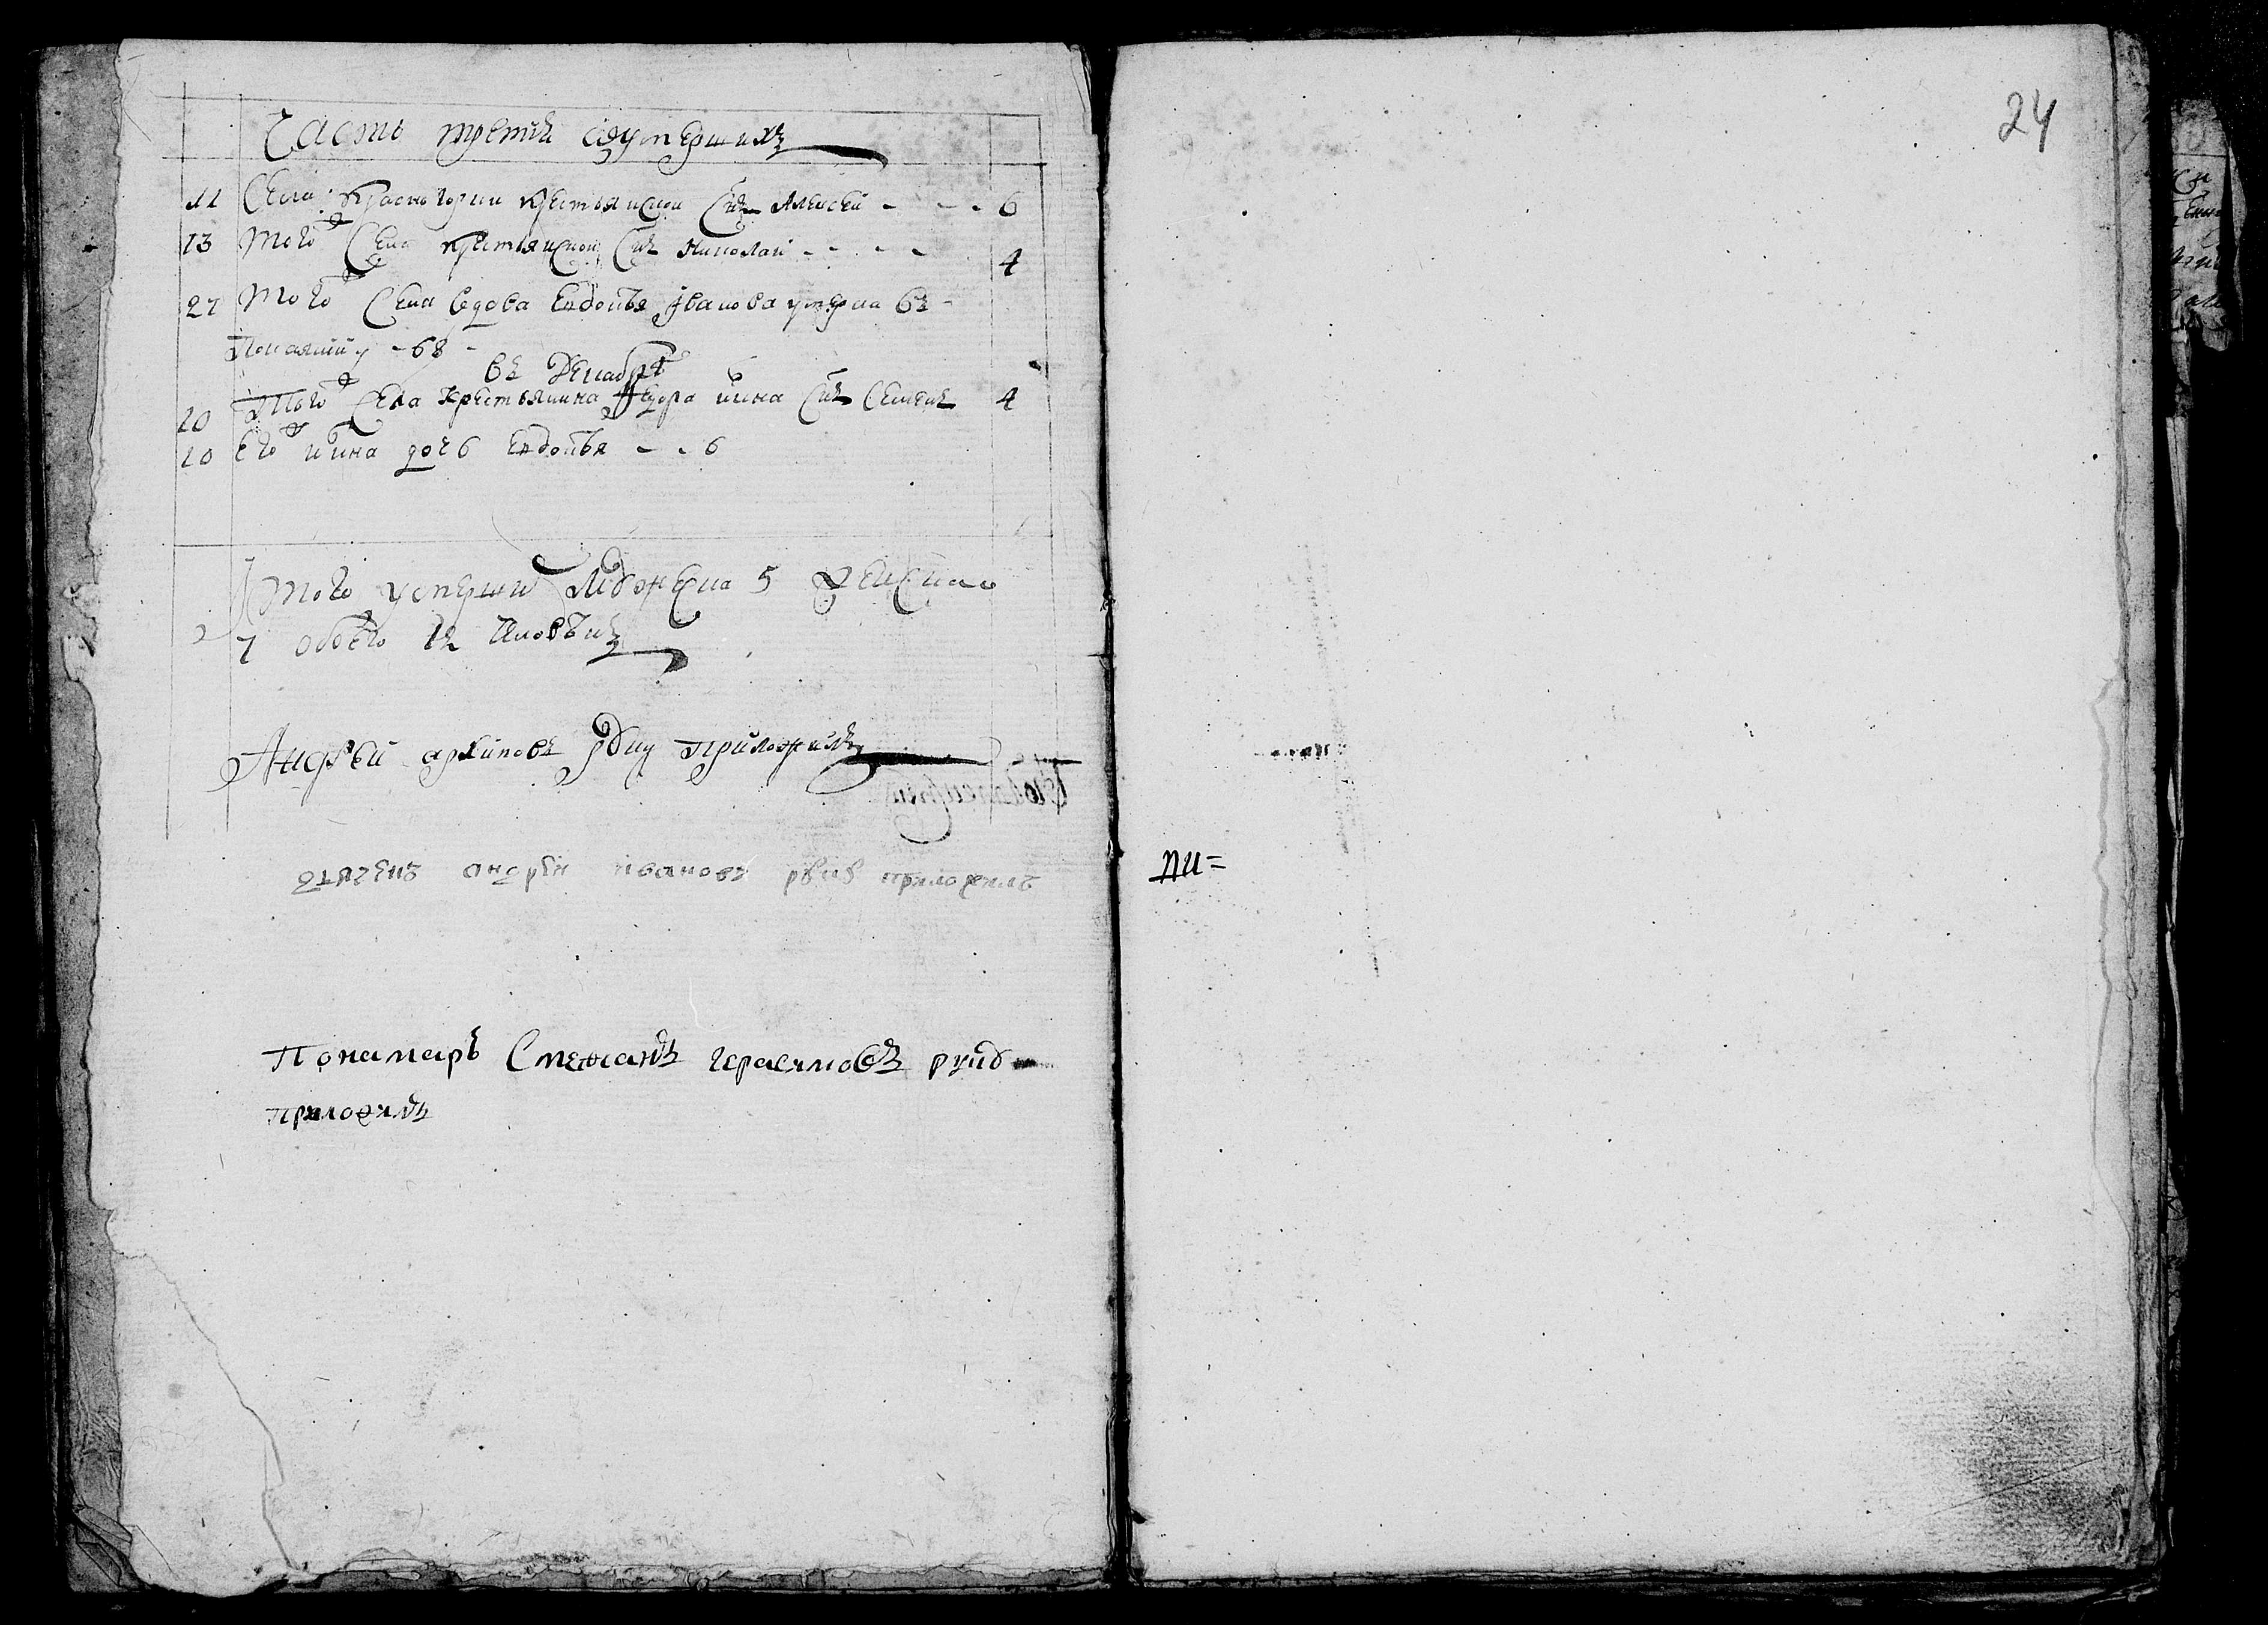 Часть третия оумершихъ
11 Села Красногории крестьянской снъ Алексей - - - 6
13 Того ж села крестьянской снъ Николай - - - - 4
27 Того ж села вдова Евдокѣя Iванова умерла въ
понаянии - 68 -
въ Декабрѣ
10 Того ж села крестьянина Федора сынъ Семенъ 4
10 Его ж дочь Евдокѣя - - 6
Iтого умерши мужеска 5 женска
7 обоего 12 члове̄къ
Андрѣй архиповъ руку приложилъ
дьячекъ андрѣй ивановъ руку приложилъ
Понамарь Степанъ герасимовъ руку
приложилъ
24
пи=